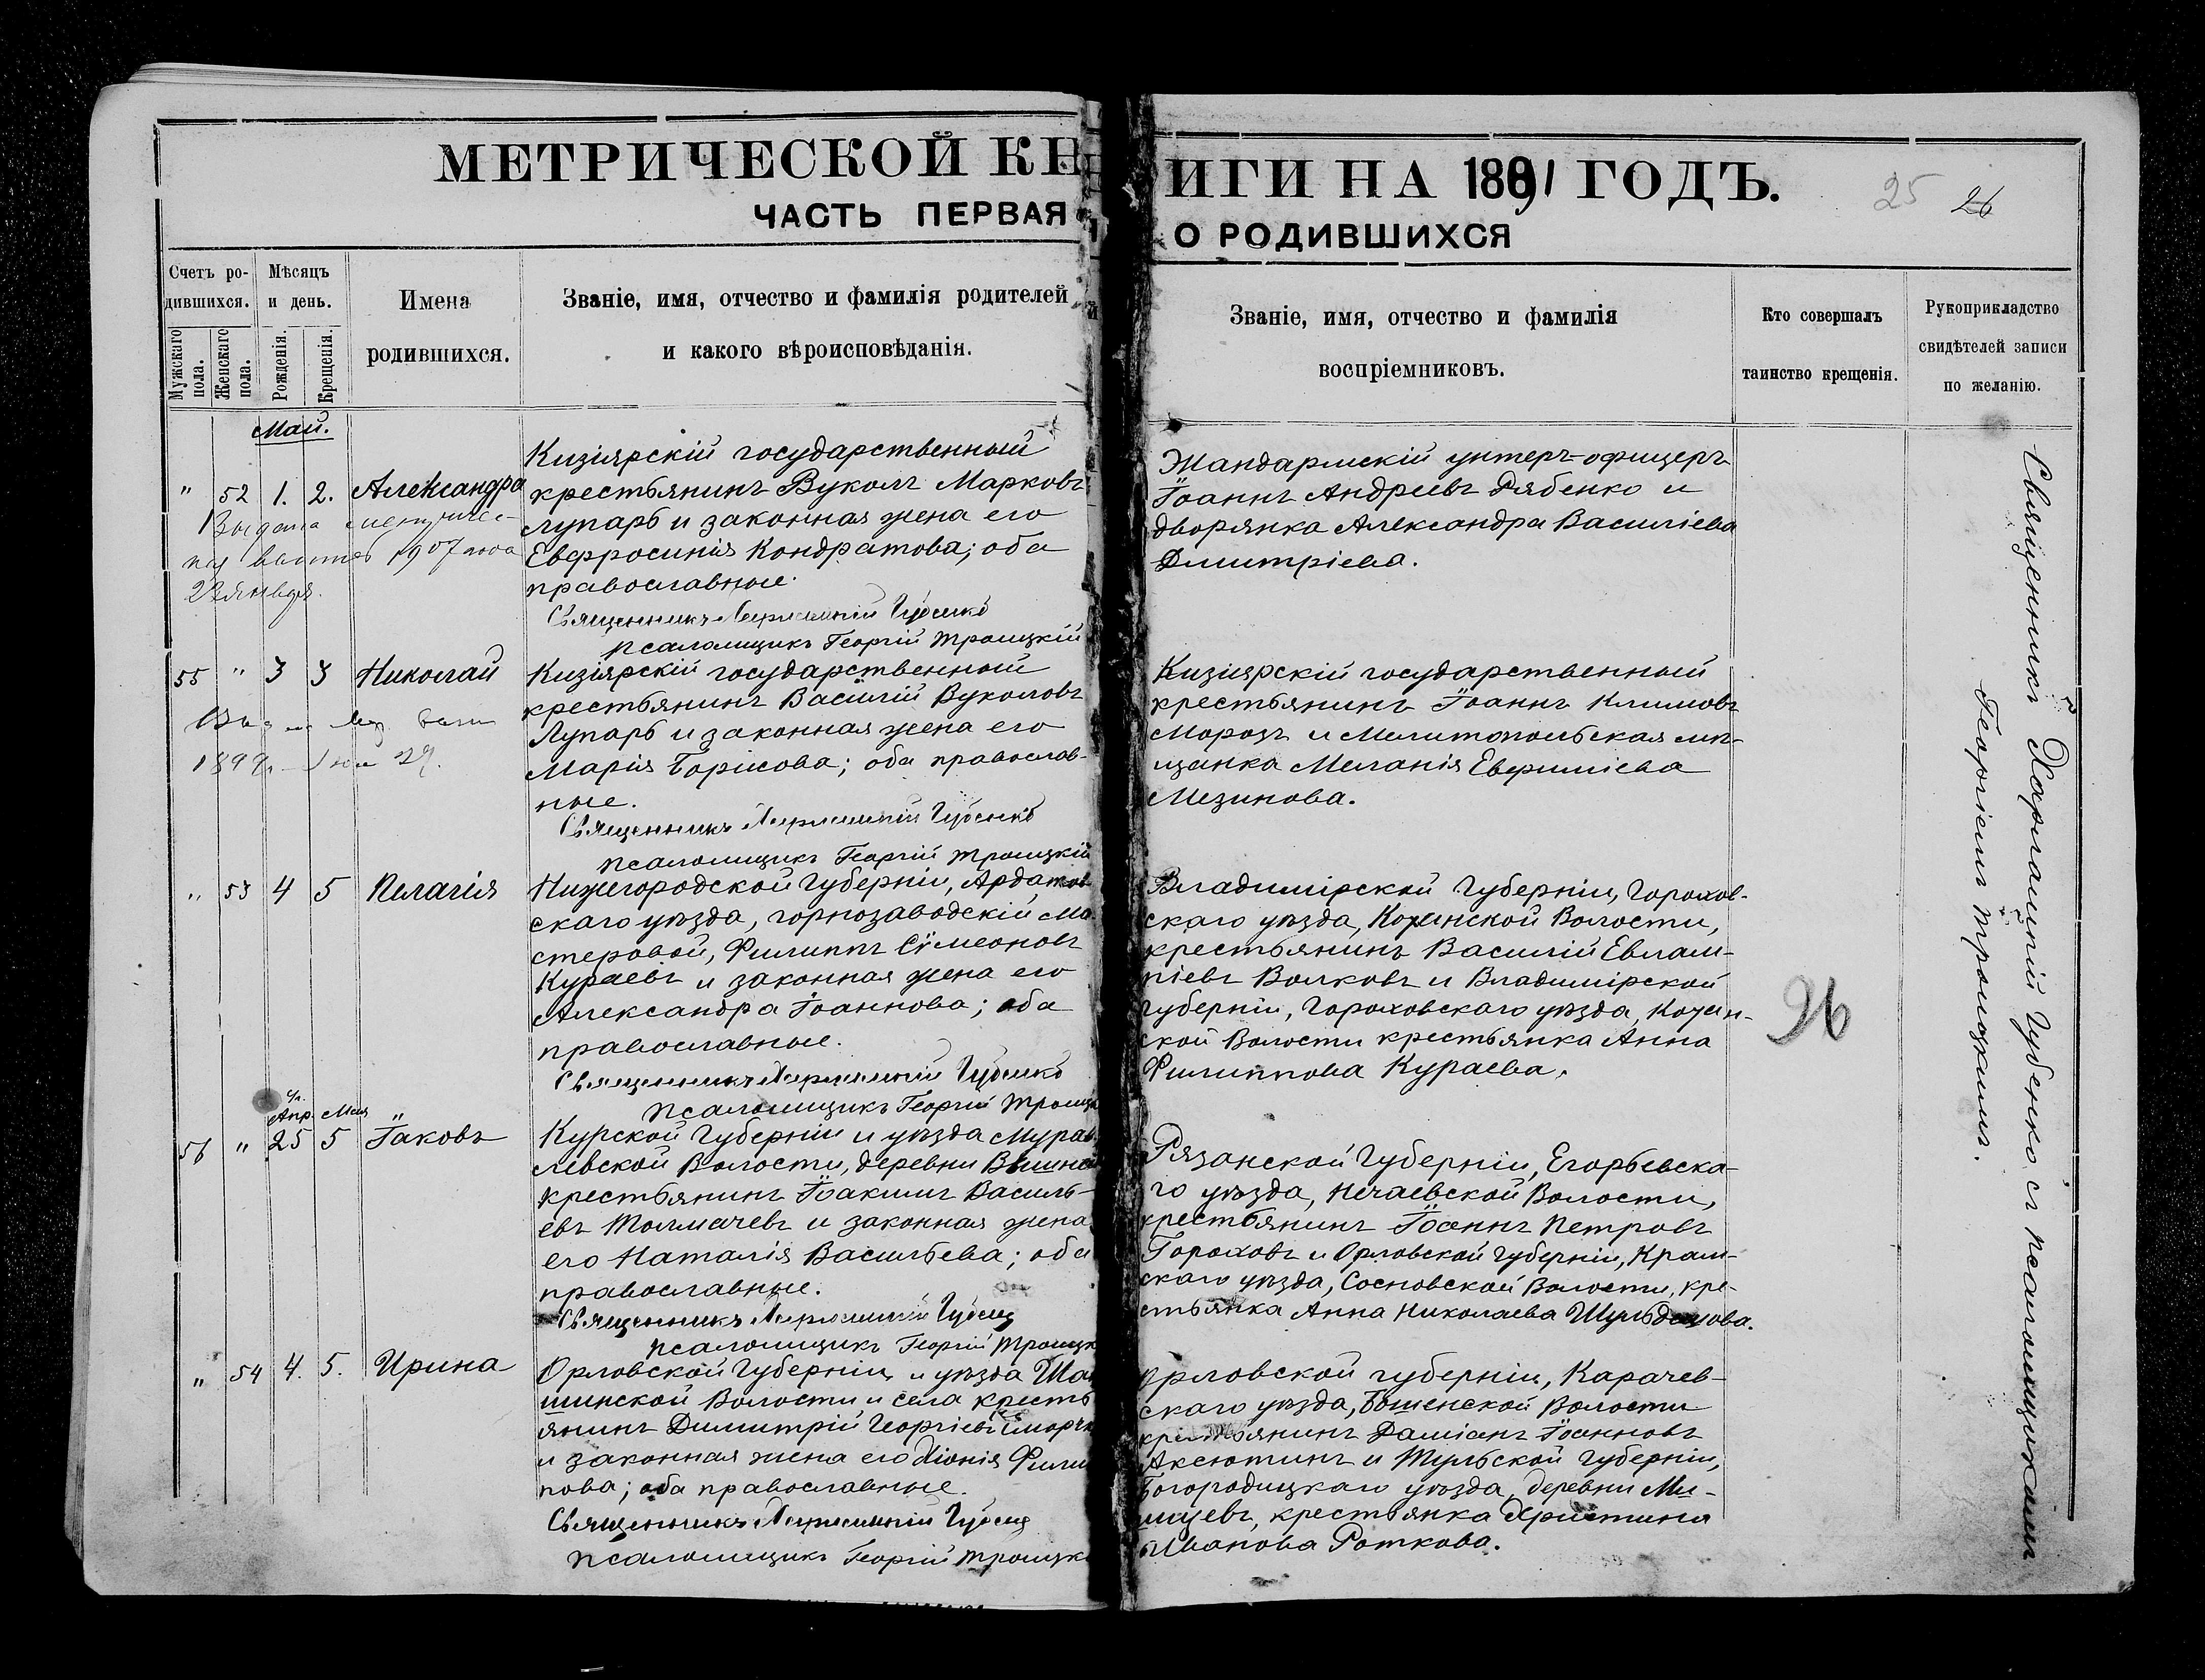 МЕТРИЧЕСКОЙ КН
ЧАСТЬ ПЕРВАЯ
Счетъ ро-
дившихся.
Мужскаго пола.
Женскаго пола.
Мѣсяцъ
и день.
Рожденія.
Крещенія.
Имена
родившихся.
Званіе, имя, отчество и фамилія родителей
и какого вѣроисповѣданія.
Май.
" 52 1. 2. Александра
Выдана
1907 года
22 января.
Кизіярскій государственный
крестьянинъ Вуколъ Марковъ
Лупарь и законная жена его
Евфросинія Кондратова; оба
православные.
Священникъ Харлампій Губенко
псаломщикъ Георгій Троицкій
55 " 3 3 Николай
Кизіярскій государственный
крестьянинъ Василій Вуколовъ
Лупарь и законная жена его
Марія Борисова; оба православ-
ные.
Священникъ Харлампій Губенко
псаломщикъ Георгій Троицкій
" 53 4 5 Пелагія
Нижегородской Губерніи, Ардатов-
скаго уѣзда, горнозаводскій ма-
стеровой, Филиппъ Сѵмеоновъ
Кураевъ и законная жена его
Александра Іоаннова; оба
православные.
Священникъ Харлампій Губенко
псаломщикъ Георгій Троицк
Апр. Мая
56 " 25 5 Іаковъ
Курской Губерніи и уѣзда Мурав-
левской Волости, деревни
крестьянинъ Іоакимъ Василь-
евъ Толмачевъ и законная жена
его Наталія Васильева; оба
православные.
Священникъ Харлампій Губенко
псаломщикъ Георгій Троицк
" 54 4. 5. Ирина
Орловской Губерніи и уѣзда
шинской Волости и села кресть
янинъ Димитрій Георгіевъ
и законная жена его Хіонія Филип
пова; оба православные.
Священникъ Харлампій Губенко
псаломщикъ Георгій Троицк
ИГИ НА 1891 ГОДЪ.
25 26
О РОДИВШИХСЯ
Званіе, имя, отчество и фамилія
воспріемниковъ.
Кто совершалъ
таинство крещенія.
Рукоприкладство
свидѣтелей записи
по желанію.
Жандармскій унтеръ-офицеръ
Іоаннъ Андреевъ Рябенко и
дворянка Александра Василіева
Дмитріева.
Кизіярскій государственный
крестьянинъ Іоаннъ Климовъ
Морозъ и Мелитопольская мѣ-
щанка Меланія Евфиміева
Мезинова.
Владимірской Губерніи, Горохов-
скаго уѣзда, Кожинской Волости,
крестьянинъ Василій Евлам-
піевъ Волковъ и Владимірской
губерніи, Гороховскаго уѣзда, Кожин-
ской Волости крестьянка Анна
Филиппова Кураева.
Рязанской Губерніи, Егорьевска-
го уѣзда, Нечаевской Волости,
крестьянинъ Іоаннъ Петровъ
Гороховъ и Орловской Губерніи, Кром-
скаго уѣзда, Сосновской Волости, кре-
стьянка Анна Николаева
Орловской губерніи, Карачев-
скаго уѣзда, Бошенской Волости
крестьянинъ Даміанъ Іоанновъ
Аксютинъ и Тульской Губерніи,
Богородицкаго уѣзда, деревни
крестьянка Христина
Иванова Роткова.
26
Священникъ Харлампій Губенко съ псаломщикомъ
Георгіемъ Троицкимъ.